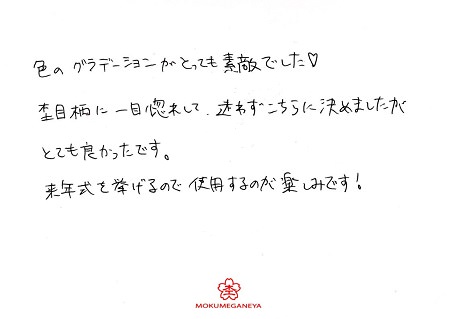 色の グラデーションがとっても素敵でした♡
杢目柄に一目惚れして、迷わずこちらに決めましたが
とても良かったです。
来年式を挙げるので使用するのが楽しみです!
杢
MOKUMEGANEYA